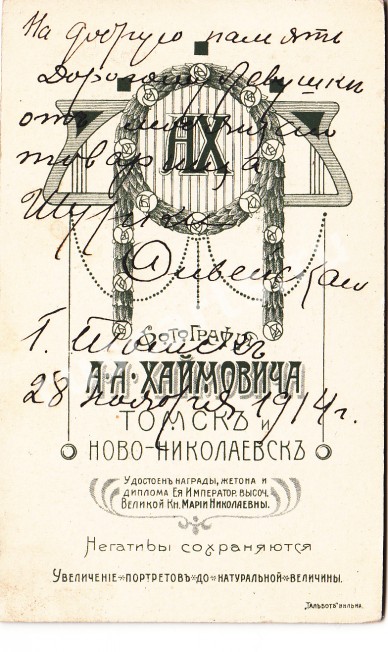 На добрую память
дорогой Левушки
от
товарища
Шурика
АХ
Г. Томскъ
28 ноября 1914 г.
Фотографія
А·А·ХАЙМОВИЧА
ТОМСКЪ и
НОВО-НИКОЛАЕВСКЪ
Удостоенъ награды, жетона и
диплома Ея Император. высоч.
Великой Кн. Маріи Николаевны.
Негативы сохраняются
Увеличеніе портретовъ до натуральной величины.
„Гальботъ" Вильна.